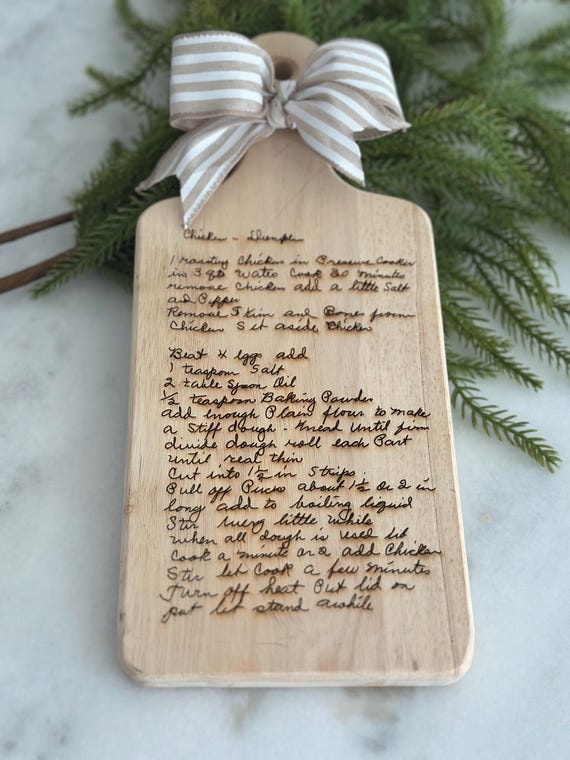 Chicken - Dumplin
1 roasting Chicken in Pressure Cooker
in 3 qts Water Cook 30 minutes
remove Chicken add a little Salt
and Pepper
Remove Skin and Bones from
Chicken Set aside Chicken
Beat 4 eggs add
1 teaspoon Salt
2 table spoon Oil
1/2 teaspoon Baking Powder
add enough Plain flour to make
a Stiff dough - Knead Until firm
divide dough roll each Part
until real thin
Cut into 1 1/2 in Strips.
Pull off Pieces about 1 1/2 or 2 in
long add to boiling liquid
Stir every little while
when all dough is used let
Cook a minute or 2 add Chicken
Stir let Cook a few minutes
Turn off heat Put lid on
put let stand awhile